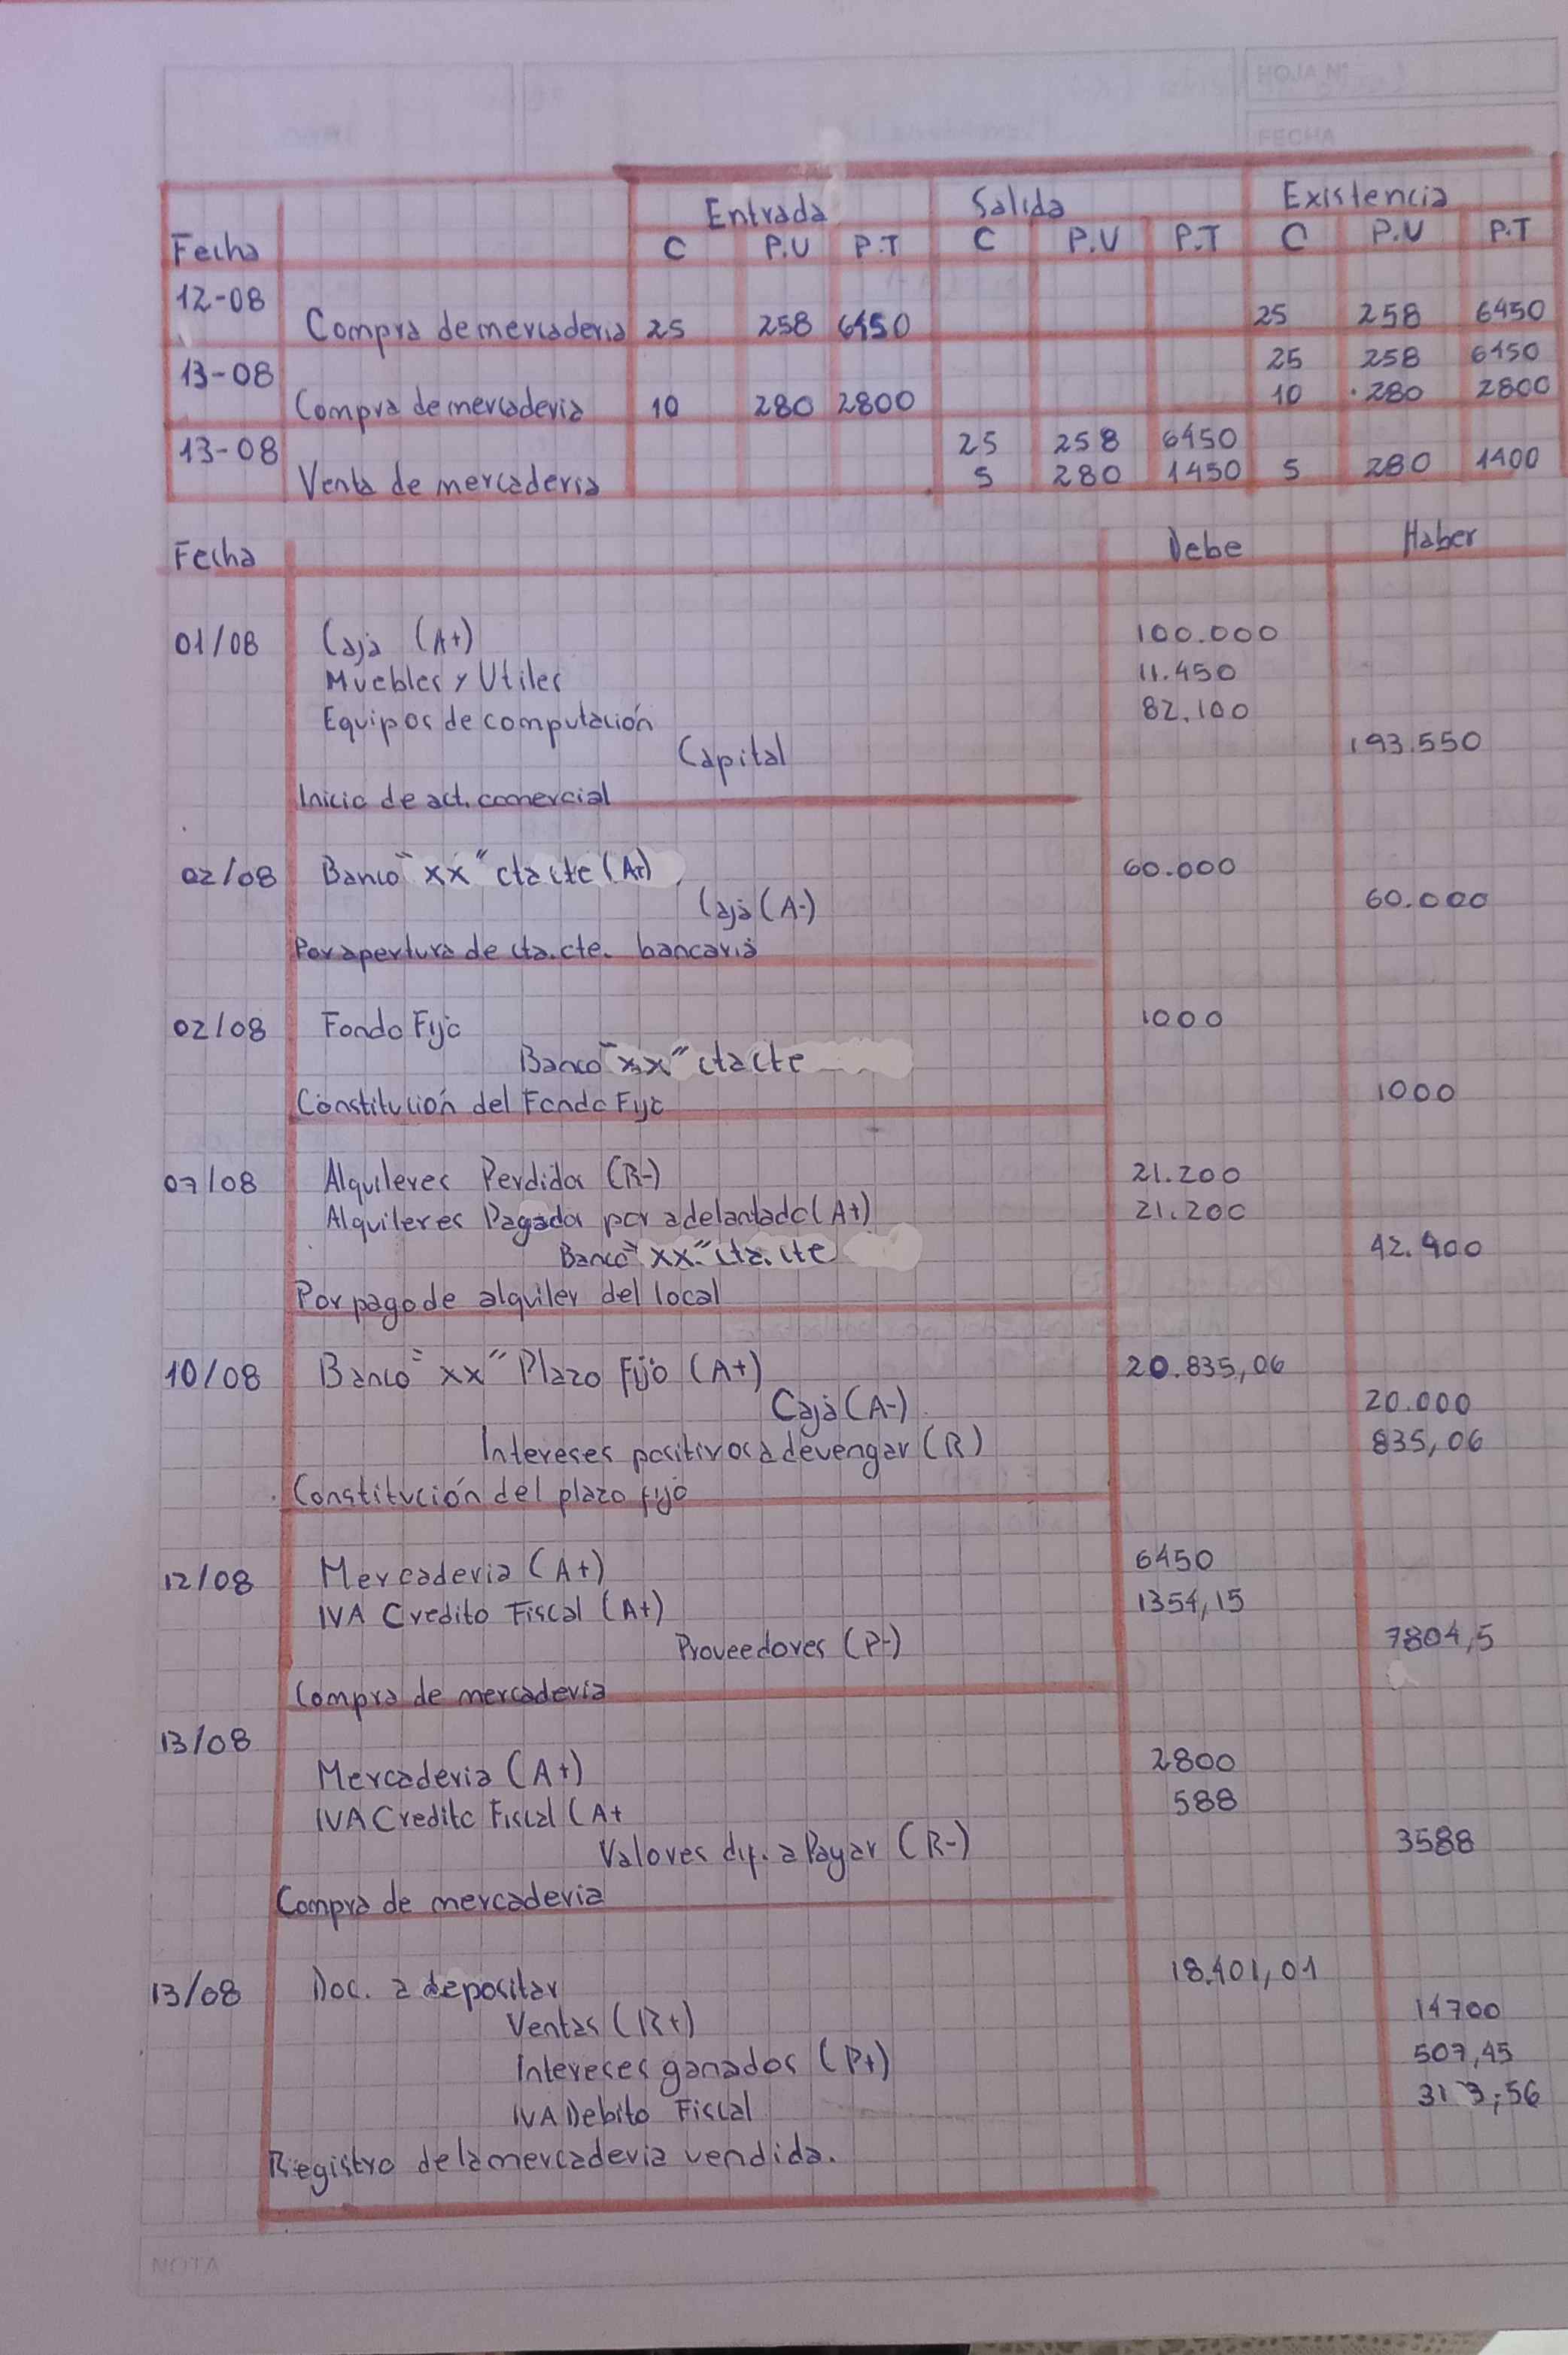 HOJA Nº
FECHA
Entrada Salida Existencia
Fecha C P.U P.T C P.U P.T C P.U P.T
12-08
Compra de mercaderia 25 258 6450 25 258 6450
13-08 25 258 6450
Compra de mercaderia 10 280 2800 10 280 2800
13-08 25 258 6450
Venta de mercaderia 5 280 1450 5 280 1400
Fecha Debe Haber
01/08 Caja (A+) 100.000
Muebles y Utiles 11.450
Equipos de computación 82.100
Capital 193.550
Inicio de act. comercial
02/08 Banco "xx" cta cte (A+) 60.000
Caja (A-) 60.000
Por apertura de cta.cte. bancaria
02/08 Fondo Fijo 1000
Banco "xx" cta cte
Constitución del Fondo Fijo 1000
07/08 Alquileres Perdidos (R-) 21.200
Alquileres Pagados por adelantado (A+) 21.200
Banco "xx" cta. cte 42.400
Por pago de alquiler del local
10/08 Banco "xx" Plazo Fijo (A+) 20.835,06
Caja (A-) 20.000
Intereses positivos a devengar (R) 835,06
Constitución del plazo fijo
12/08 Mercaderia (A+) 6450
IVA Credito Fiscal (A+) 1354,15
Proveedores (P-) 7804,5
Compra de mercaderia
13/08
Mercaderia (A+) 2800
IVA Credito Fiscal (A+ 588
Valores dif. a Pagar (R-) 3588
Compra de mercaderia
13/08 Doc. a depositar 18.401,01
Ventas (R+) 14700
Intereses ganados (P+) 507,45
IVA Debito Fiscal
Registro de la mercaderia vendida.
NOTA